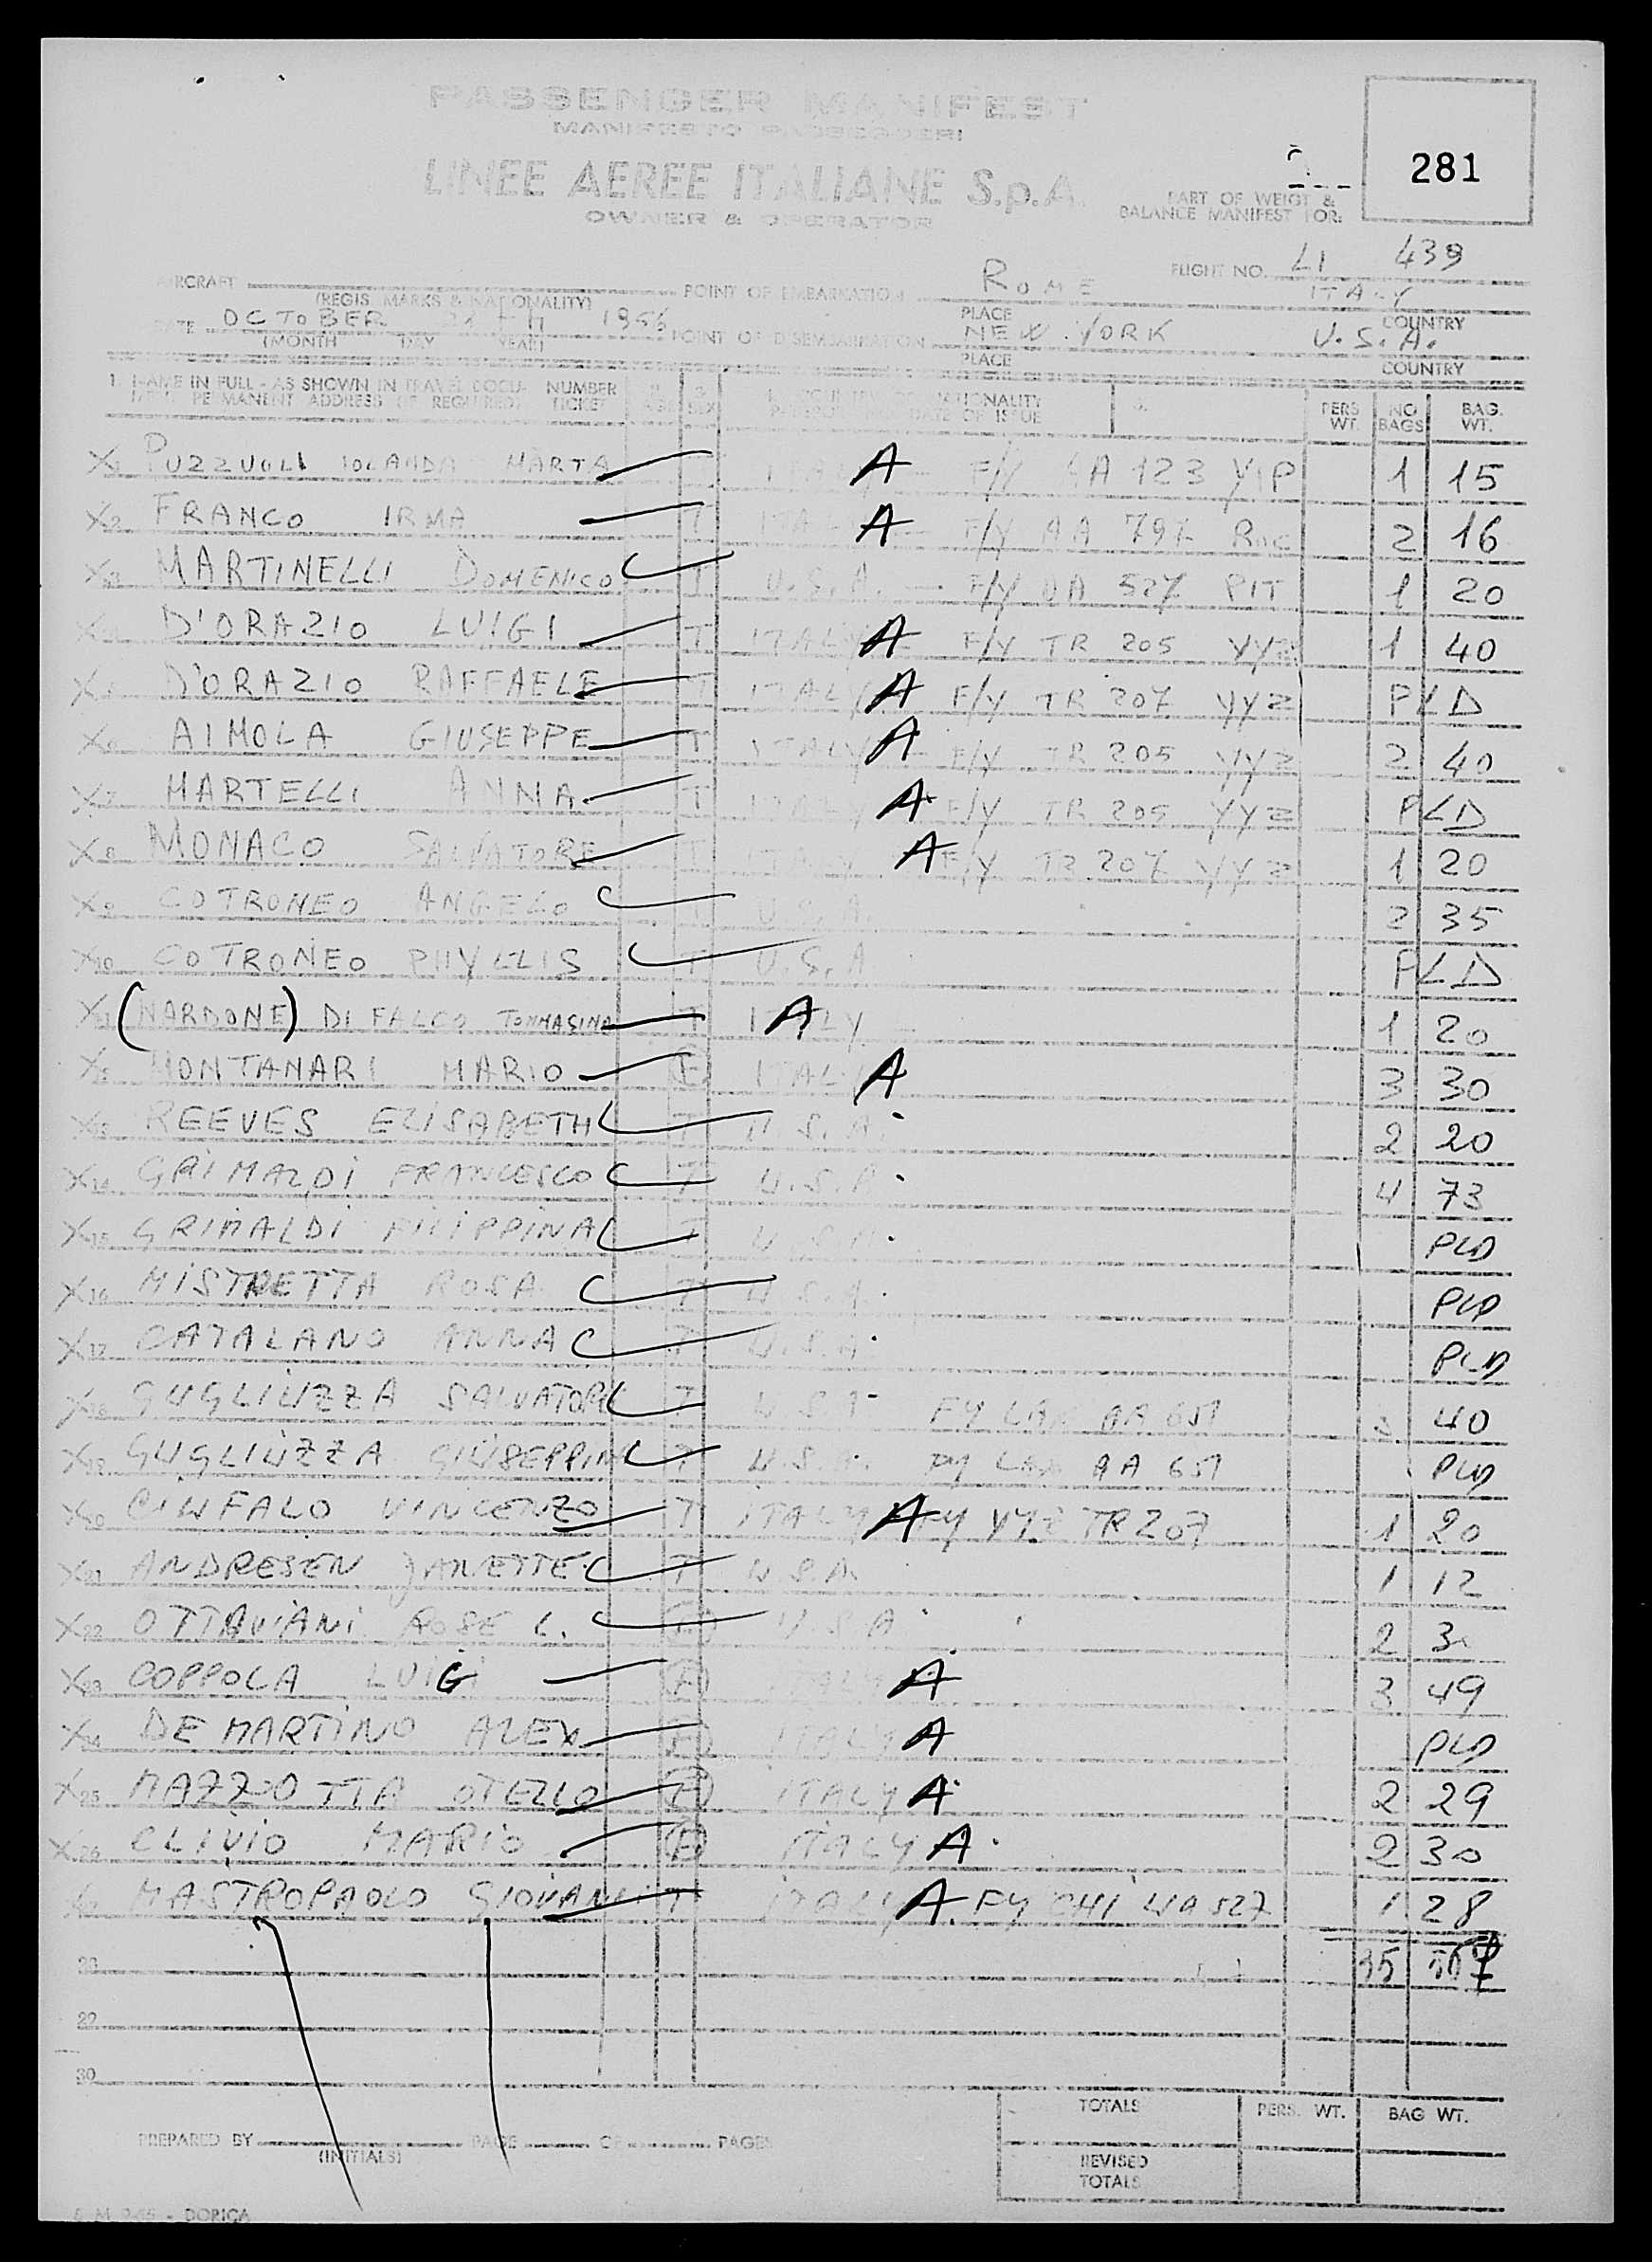 PASSENGER MANIFEST
MANIFESTO PASSEGGERI
LINEE AEREE ITALIANE S.p.A.
OWNER & OPERATOR
281
PART OF WEIGT &
BALANCE MANIFEST FOR:
FLIGHT NO. LI 439
AIRCRAFT POINT OF EMBARKATION ROME ITALY
(REGIS MARKS & NATIONALITY) PLACE COUNTRY
DATE OCTOBER 1956 POINT OF DISEMBARKATION NEW YORK U.S.A.
(MONTH DAY YEAR) PLACE COUNTRY
1. NAME IN FULL - AS SHOWN IN TRAVEL DOCU- NUMBER SEX NATIONALITY PERS NO BAG.
MENT PERMANENT ADDRESS (IF REQUIRED) TICKET DATE OF ISSUE WT. BAGS WT.
X1 PUZZUOLI IOLANDA MARTA A F/Y 123 1 15
X2 FRANCO IRMA T ITALY A F/Y AA 797 2 16
X3 MARTINELLI DOMENICO T U.S.A. F/Y UA 527 PIT 1 20
X4 D'ORAZIO LUIGI T ITALY A F/Y TR 205 YYZ 1 40
X5 D'ORAZIO RAFFAELE T ITALY A F/Y TR 207 YYZ PLD
X6 AIMOLA GIUSEPPE T ITALY A F/Y TR 205 YYZ 2 40
X7 MARTELLI ANNA T ITALY A F/Y TR 205 YYZ PLD
X8 MONACO SALVATORE T ITALY A F/Y TR 207 YYZ 1 20
X9 COTRONEO ANGELO T U.S.A. 2 35
X10 COTRONEO PHYLLIS T U.S.A. PLD
X11 (NARDONE) DI FALCO TOMMASINA T ITALY A 1 20
X12 MONTANARI MARIO E ITALY A 3 30
X13 REEVES ELISABETH T U.S.A. 2 20
X14 GRIMALDI FRANCESCO T U.S.A. 4 73
X15 GRIMALDI FILIPPINA T U.S.A. PLD
X16 MISTRETTA ROSA T U.S.A. PLD
X17 CATALANO ANNA T U.S.A. PLD
X18 GUGLIUZZA SALVATORE T U.S.A. FY LAX AA 651 3 40
X19 GUGLIUZZA GIUSEPPINA T U.S.A. FY LAX AA 651 PLD
X20 CINFALO VINCENZO T ITALY A FY YYZ TR 207 1 20
X21 ANDRESEN JANETTE T U.S.A. 1 12
X22 OTTAVIANI ROSE L. U.S.A. 2
X23 COPPOLA LUIGI ITALY A 3 49
X24 DE MARTINO ALEX ITALY A PLD
X25 MAZZOTTA OTELLO ITALY A 2 29
X26 CLIVIO MARIO ITALY A 2 30
X27 MASTROPAOLO GIOVANNI T ITALY A FY CHI UA 527 1 28
28 35
29
30
TOTALS PERS. WT. BAG WT.
PREPARED BY PAGE OF PAGES
(INITIALS)
REVISED
TOTALS
DORICA